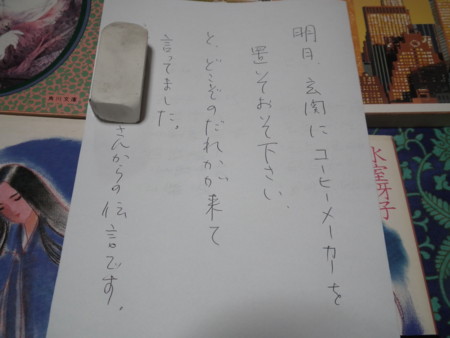 明日、玄関にコーヒーメーカーを
置いておいて下さい
と、どこぞのだれかが来て
言ってました。
さんからの伝言です。
角川文庫
氷室冴子